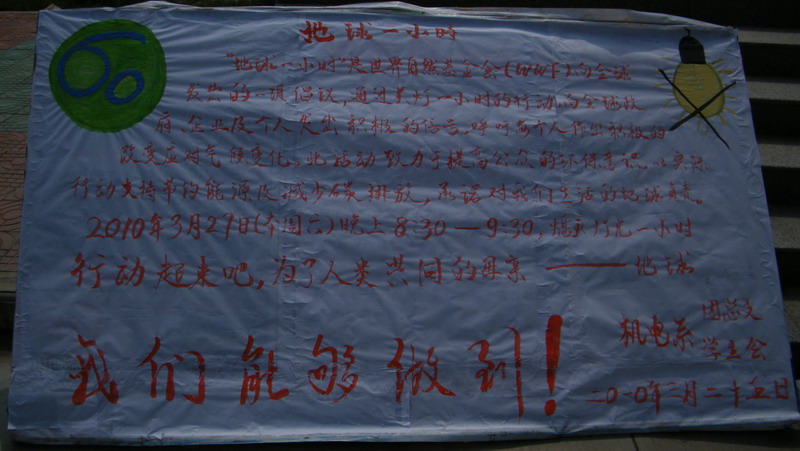 60
地球一小時
“地球一小时”是世界自然基金会(WWF)向全球
发出的一项倡议,通过关灯一小时的行动向全球政
府、企业及个人发出积极的信号,呼吁每个人作出积极的
改变应对气候变化。此活动致力于提高公众的环保意识,以实际
行动支持节约能源及减少碳排放,承诺对我们生活的地球负责。
2010年3月27日(本周六)晚上8:30—9:30,熄灭灯光一小时
行动起来吧,为了人类共同的母亲——地球
我们能够做到!
机电系 团总支
学生会
二〇一〇年三月二十五日